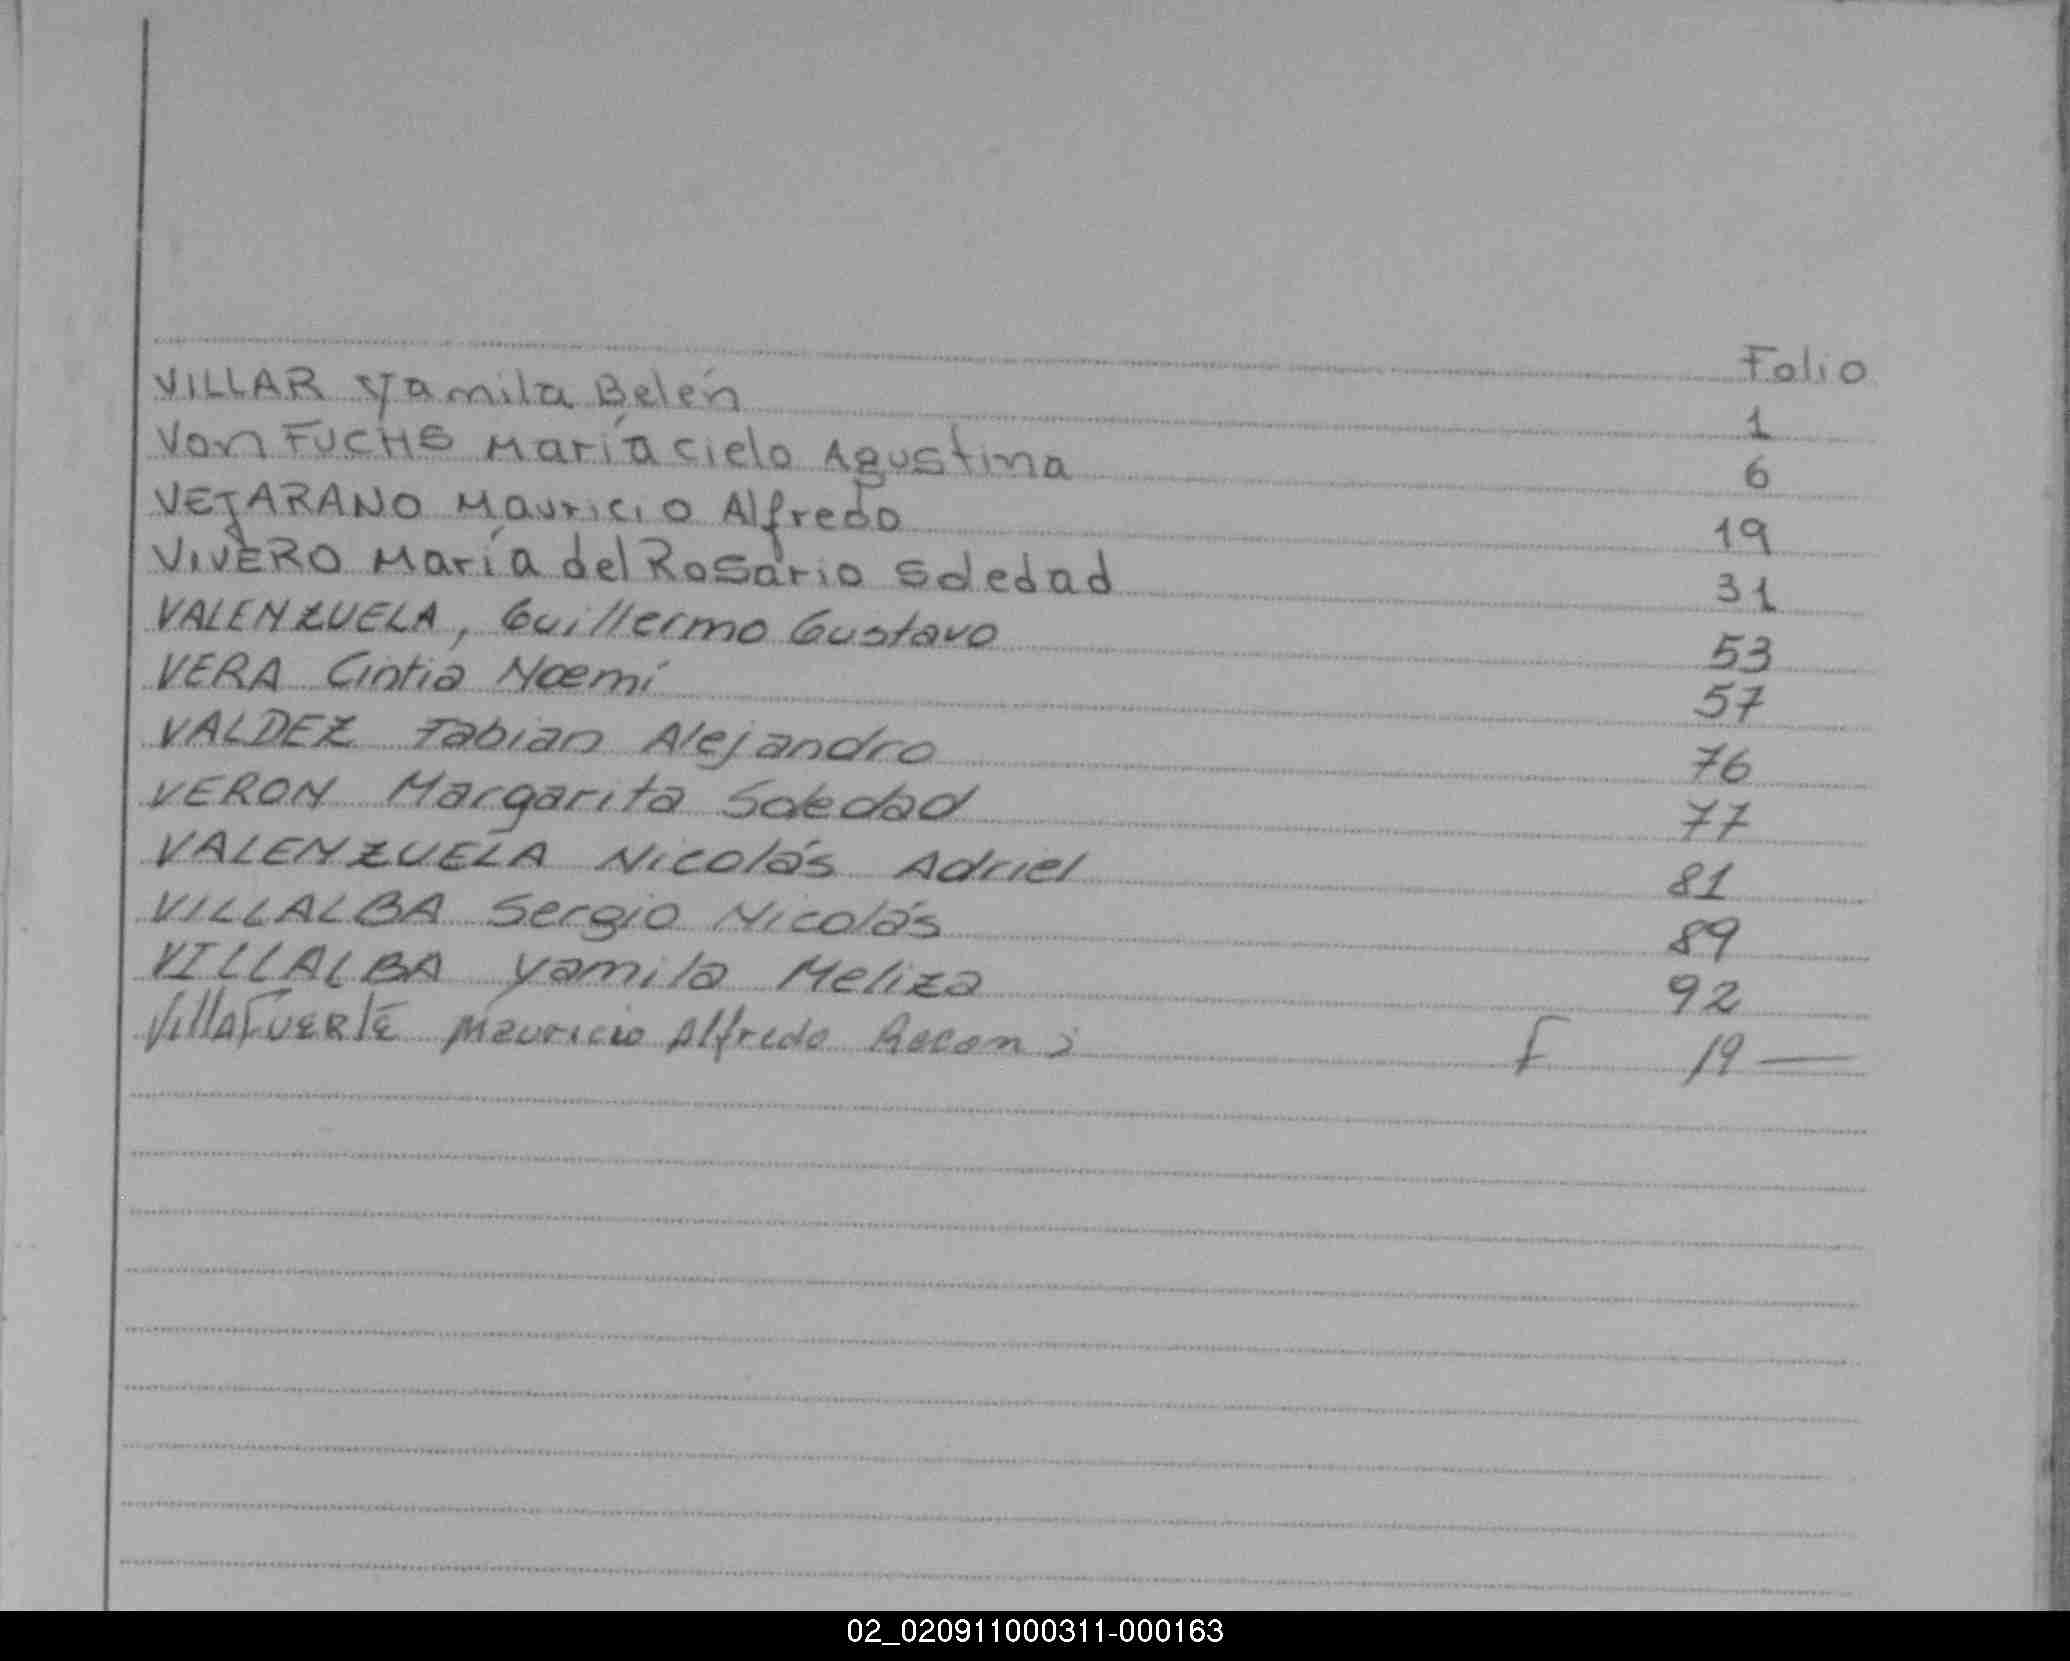 Folio
VILLAR Yamila Belén 1
Von FUCHS María Cielo Agustina 6
VEJARANO Mauricio Alfredo 19
VIVERO María del Rosario Soledad 31
VALENZUELA, Guillermo Gustavo 53
VERA Cintia Noemí 57
VALDEZ Fabian Alejandro 76
VERON Margarita Soledad 77
VALENZUELA Nicolás Adriel 81
VILLALBA Sergio Nicolás 89
VILLALBA Yamila Meliza 92
VillaFUERTE Mauricio Alfredo F 19 —
02_020911000311-000163